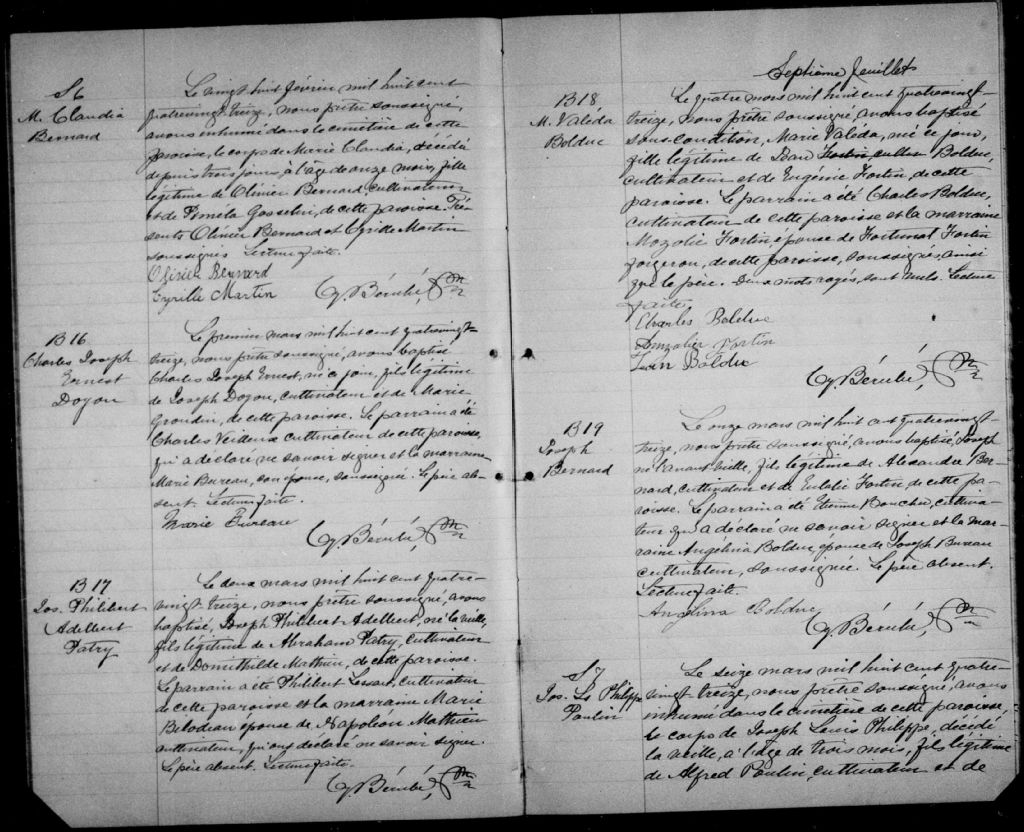 S6
M. Claudia
Bernard
Le vingt huit février mil huit cent
quatrevingt treize, nous prêtre soussigné,
avons inhumé dans le cimetière de cette
paroisse, le corps de Marie Claudia, décédée
depuis trois jours, à l'âge de onze mois, fille
légitime de Olivier Bernard, cultivateur
et de Pamela Gosselin, de cette paroisse. Pré-
sents Olivier Bernard et Cyrille Martin
soussignés Lecture faite.
Olivier Bernard
Cyrille Martin
Bérubé, Ptre
B16
Charles Joseph
Ernest
Doyon
Le premier mars mil huit cent quatrevingt-
treize, nous prêtre soussigné, avons baptisé
Charles Joseph Ernest, né ce jour, fils légitime
de Joseph Doyon, cultivateur et de Marie
Grondin, de cette paroisse. Le parrain a été
Charles Veilleux cultivateur de cette paroisse,
qui a déclaré ne savoir signer et la marraine
Marie Bureau, son épouse, soussignée. Le père ab-
sent. Lecture faite.
Marie Bureau
Bérubé, Ptre
B17
Jos. Philibert
Adelbert
Patry
Le deux mars mil huit cent quatre-
vingt treize, nous prêtre soussigné, avons
baptisé, Joseph Philibert Adelbert, né la veille,
fils légitime de Abraham Patry, cultivateur
et de Domithilde Mathieu, de cette paroisse.
Le parrain a été Philibert Lessard, cultivateur
de cette paroisse et la marraine Marie
Bilodeau épouse de Napoléon Mathieu
cultivateur, qui ont déclaré ne savoir signer.
Le père absent. Lecture faite.
Bérubé, Ptre
Septième feuillet
B18
M. Valéda
Bolduc
Le quatre mars mil huit cent quatrevingt-
treize, nous prêtre soussigné, avons baptisé
sous condition, Marie Valeda, née ce jour,
fille légitime de Jean Fortin cultiv Bolduc,
cultivateur et de Eugénie Fortin, de cette
paroisse. Le parrain a été Charles Bolduc,
cultivateur de cette paroisse et la marraine
Fortin épouse de Fortunat Fortin
forgeron, de cette paroisse, soussignés, ainsi
que le père. Deux mots rayés, sont nuls. Lecture
faite.
Charles Bolduc
Fortin
Jean Bolduc
Bérubé, Ptre
B19
Joseph
Bernard
Le onze mars mil huit cent quatrevingt-
treize, nous prêtre soussigné, avons baptisé, Joseph
né l'avant veille, fils légitime de Alexandre Ber-
nard, cultivateur et de Eulalie Fortin, de cette pa-
roisse. Le parrain a été Etienne Boucher, cultiva-
teur qui a déclaré ne savoir signer et la mar-
raine Angélina Bolduc, épouse de Joseph Bureau
cultivateur, soussignée. Le père absent.
Lecture faite.
Angelina Bolduc
Bérubé, Ptre
S7
Jos. Ls Philippe
Poulin
Le seize mars mil huit cent quatre-
vingt treize, nous prêtre soussigné, avons
inhumé dans le cimetière de cette paroisse,
le corps de Joseph Louis Philippe, décédé
la veille, à l'âge de trois mois, fils légitime
de Alfred Poulin, cultivateur et de